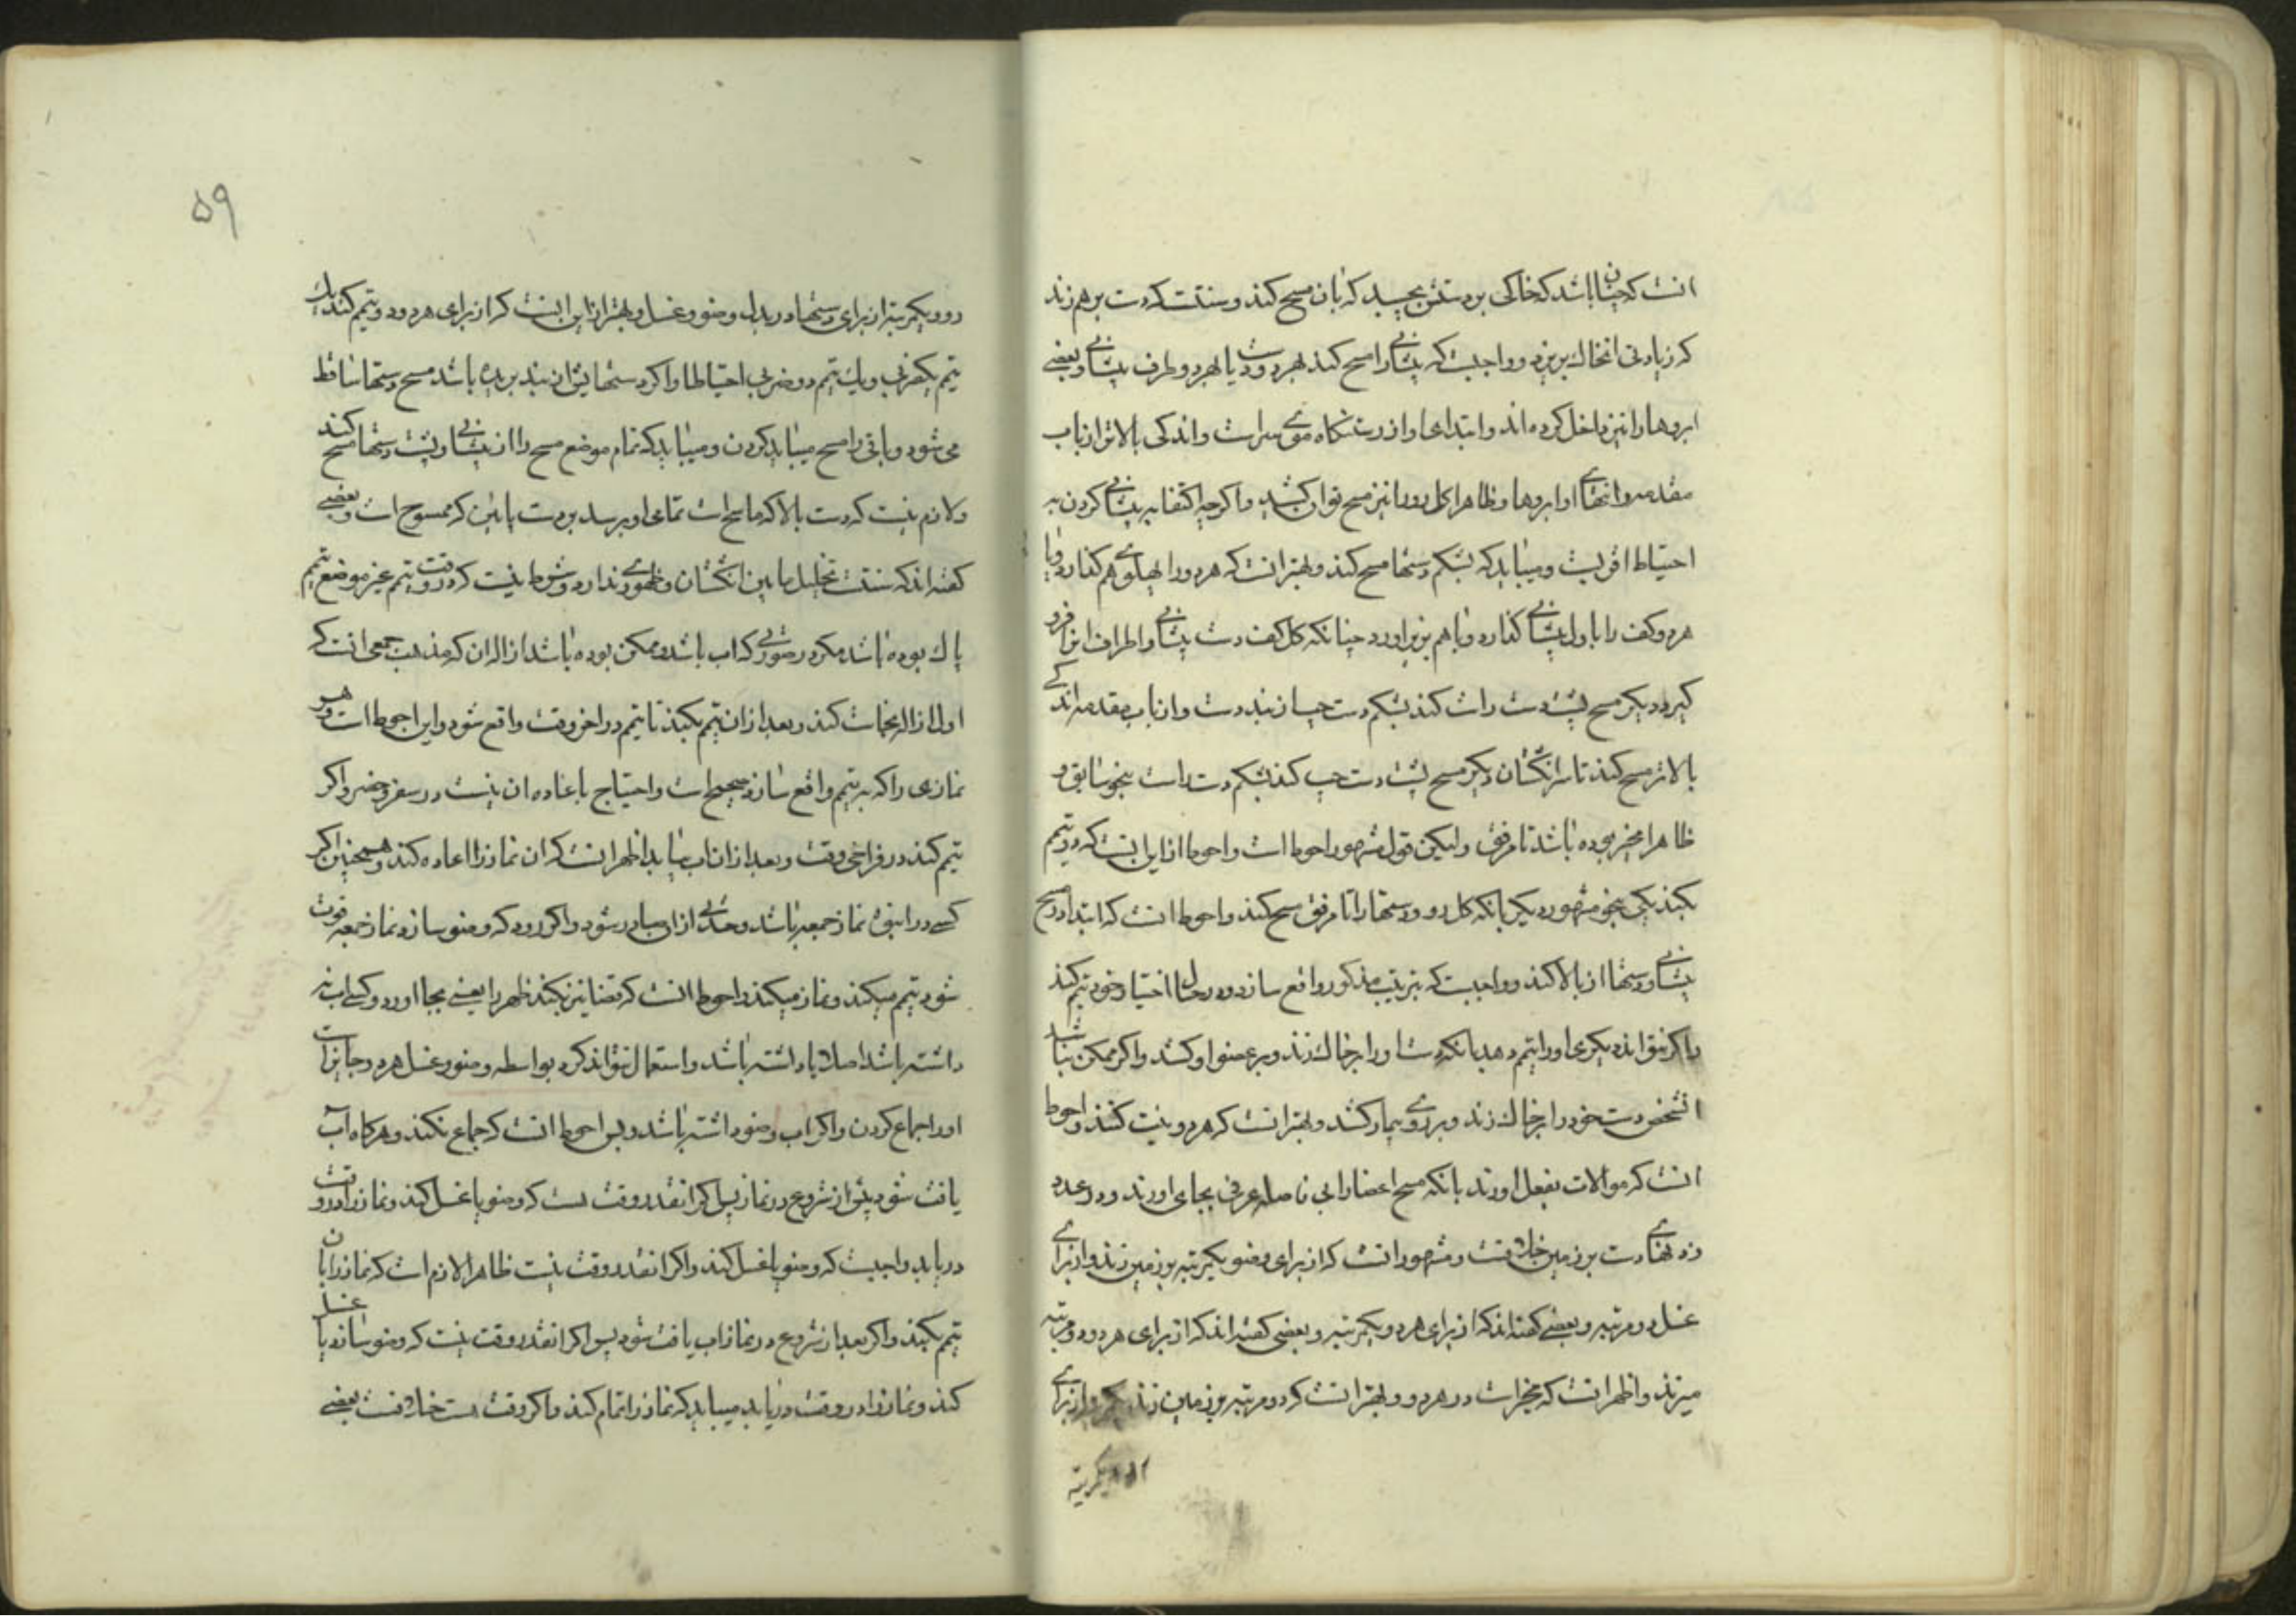 انست که چنان باشد که خاکی بر دستش بچسبد که بان مسح کند و سنتست که دست برهم زند
که زیادتی انخاک بریزد و واجبست که پیشانی را مسح کند بهر دو دست یا بهر دو طرف پیشانی و بعضی
ابروها را نیز داخل کرده‌اند و ابتدای او از رستنگاه موی سراست و اندکی بالاتر از باب
مقدمه و انتهای او ابروها و ظاهرا کل رو را نیز مسح توان کشید و اگرچه اکتفا به پیشانی کردن به
احتیاط اقربست و میباید که بشکم دستها مسح کند و بهتر انست که هر دو را بهلوی هم گذارد و یا
هر دو کف را باول پیشانی گذارد و با هم بزیر اورد چنانکه کل کف دست پیشانی و اطراف انرا فرو
گیرد دیگر مسح پشت دست راست کند بشکم دست چپ از بند دست و از باب مقدمه اندکی
بالاتر مسح کند تا سر انگشتان دیگر مسح پشت دست چپ کند بشکم دست راست بنحو سابق و
ظاهرا مخیر بوده باشد تا مرفق ولیکن قول مشهور احوط است و احوط از این اینست که دو تیمم
بکند یکی بنحو مشهور دیگر بانکه کل رو و دستها را تا مرفق مسح کند و احوط انست که ابتدا در مسح
پیشانی و دستها از بالا کند و واجبست که بترتیب مذکور واقع سازد و در حال اختیار خود تیمم کند
و اگر نتواند دیگری او را تیمم دهد بانکه دست او را بر خاک زند و بر عضو او کشد و اگر ممکن نباشد
انشخص دست خود را بر خاک زند و بر روی بیمار کشد و بهتر انست که هر دو نیت کنند و احوط
انست که موالات بفعل اورند بانکه مسح اعضا را بی فاصله عرفی بجای اورند و در عدد
زدنهای دست بر زمین خلافست و مشهور انست که از برای وضو یکمرتبه بر زمین زند و از برای
غسل دو مرتبه و بعضی گفته‌اند که از برای هر دو یکمرتبه و بعضی گفته‌اند که از برای هر دو دو مرتبه
میزند و اظهر انست که مخیر است در هر دو و بهتر انست که دو مرتبه بر زمین زند یکی از برای
یکمرتبه
۵۹
رو و یکمرتبه از برای دستها در بدل وضو و غسل و بهتر از این اینست که از برای هر دو دو تیمم کند یک
تیمم بیکضربی و یک تیمم دو ضربی احتیاطا و اگر دستهایش از بند بریده باشد مسح دستها ساقط
می‌شود و باقی را مسح میباید کردن و میباید که تمام موضع مسح را از پیشانی و پشت دستها مسح کند
و لازم نیست که دست بالا که ماسح است تمامی او برسد بر دست پائین که ممسوح است و بعضی
گفته‌اند که سنتست تخلیل مابین انگشتان و ظهوری ندارد و شرط نیست که در وقت تیمم غیر موضع تیمم
پاک بوده باشد مگر در صورتی که اب باشد و ممکن بوده باشد ازاله ان که مذهب جمعی انست که
اول ازاله نجاست کند و بعد از ان تیمم بکند تا تیمم در اخر وقت واقع شود و این احوط است و هر
نمازی را که به تیمم واقع سازد صحیح است و احتیاج باعاده ان نیست در سفر و حضر و اگر
تیمم کند در فراخی وقت و بعد از ان اب بیابد اظهر انست که ان نماز را اعاده کند و همچنین اگر
کسی در انبوه نماز جمعه باشد و حدثی از او صادر شود و اگر رود که وضو سازد نماز جمعه فوت
شود تیمم میکند و نماز میکند و احوط انست که قضا نیز بکند ظهر را یعنی بجا اورد و کسی اب نه
داشته باشد اصلا یا داشته باشد و استعمال نتواند کرد بواسطه وضو و غسل هر دو جایز است
او را جماع کردن و اگر اب وضو داشته باشد و بس احوط انست که جماع نکند و هرگاه آب
یافت شود پیش از شروع در نماز پس اگر انقدر وقت هست که وضو یا غسل کند و نماز را در وقت
دریابد واجبست که وضو یا غسل کند و اگر انقدر وقت نیست ظاهرا لازم است که نماز را بان
تیمم بکند و اگر بعد از شروع در نماز اب یافت شود پس اگر انقدر وقت نیست که وضو سازد یا غسل
کند و نماز را در وقت دریابد میباید که نماز را تمام کند و اگر وقت هست خلافست بعضی